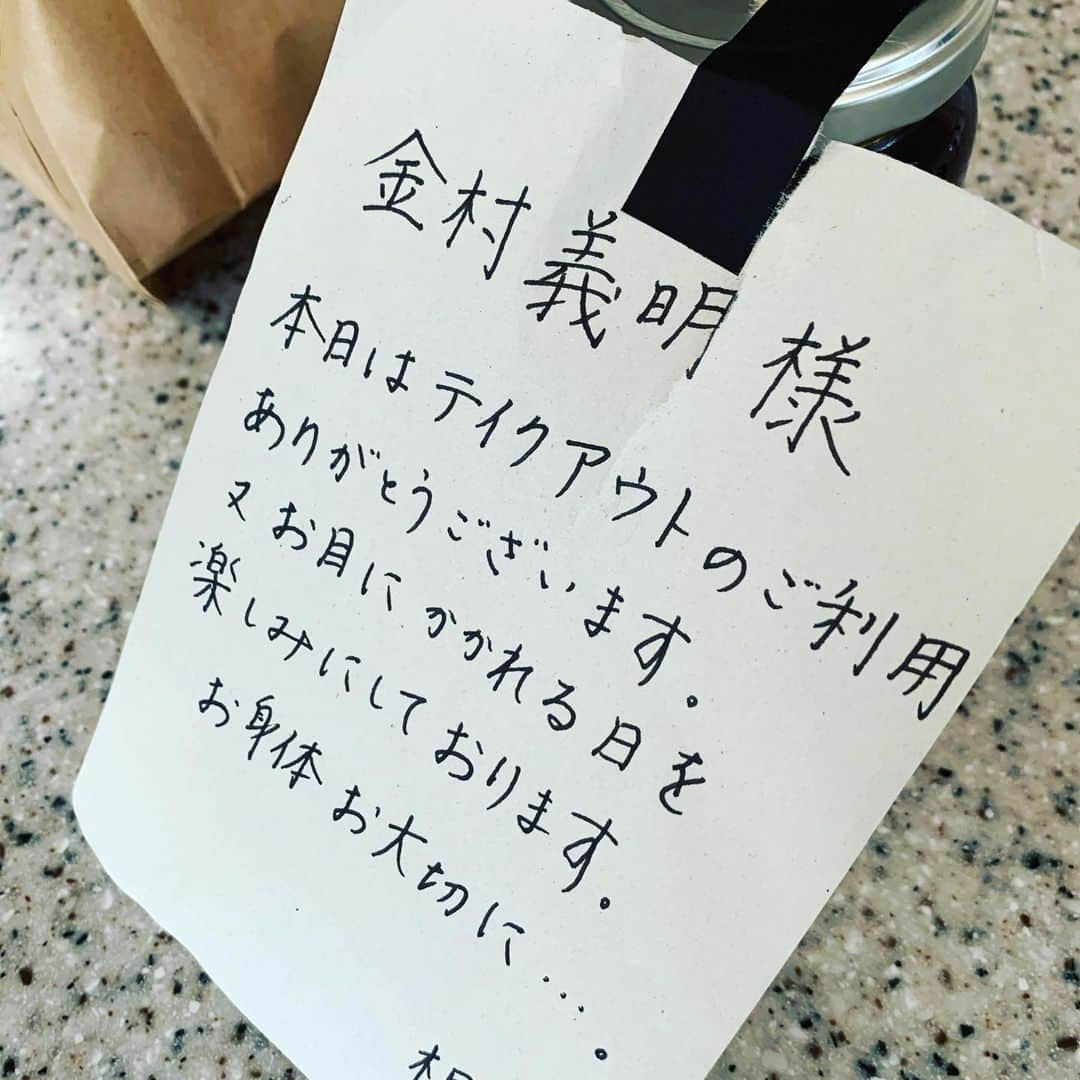 金村義明様
本日はテイクアウトのご利用
ありがとうございます。
又お目にかかれる日を
楽しみにしております。
お身体お大切に…。